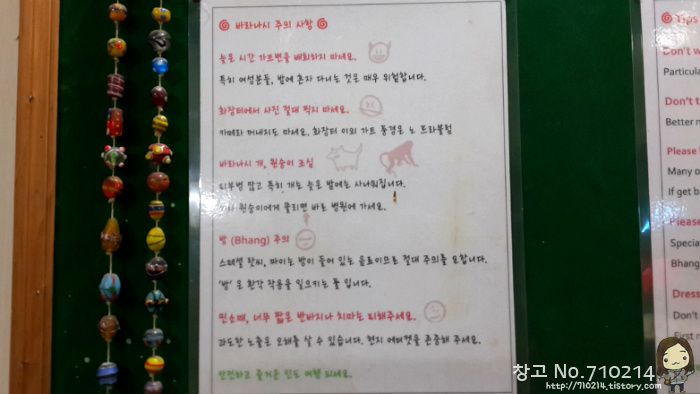 바라나시 주의 사항
늦은 시간 가트변을 배회하지 마세요.
특히 여성분들, 밤에 혼자 다니는 것은 매우 위험합니다.
화장터에서 사진 절대 찍지 마세요.
카메라 꺼내지도 마세요. 화장터 이외 가트 풍경은 노 프라블럼
바라나시 개, 원숭이 조심
피부병 많고 특히 개는 늦은 밤에는 사나워집니다.
원숭이에게 물리면 바로 병원에 가세요.
방 (Bhang) 주의
스페셜 랏씨, 파이는 방이 들어 있는 음료이므로 절대 주의를 요합니다.
'방' 은 환각 작용을 일으키는 풀 입니다.
민소매, 너무 짧은 반바지나 치마는 피해주세요.
과도한 노출은 오해를 살 수 있습니다. 현지 에티켓을 존중해 주세요.
안전하고 즐거운 인도 여행 되세요.
Tips
Don't w
Particula
Don't t
Better n
Please
Many o
If get b
Please
Special
Bhang
Dress
Don't
First
창고 No.710214
http://710214.tistory.com/